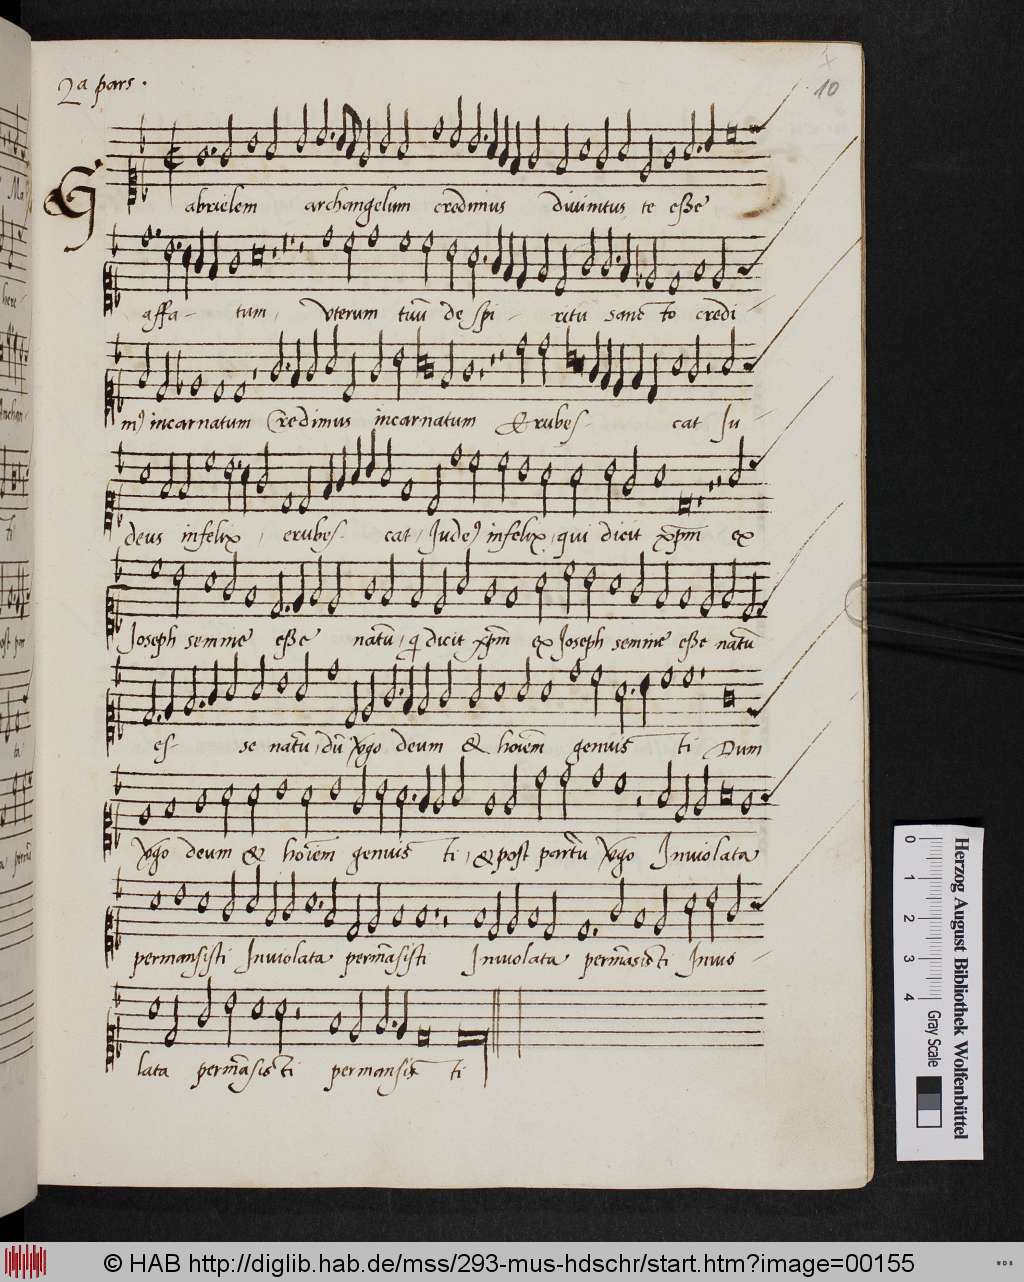 2a pars .
10
Gabrielem archangelum credimus divinitus te eße
affa- tum, vterum tuū de spi- ritu sancto credi-
incarnatum Credimus incarnatum Erubes- cat Ju-
deus infelix, erubes- cat, infelix, qui dicit xp̄m ex
Joseph semine eße natū, dicit xp̄m ex Joseph semine eße natū
es- se natū, dū deum & hoīem genuis ti Dum
deum & hoīem genuis ti, & post Inviolata
permansisti Inviolata permāsisti Inviolata permāsisti Invio-
lata permāsisti permansis ti
0 1 2 3 4
Gray Scale
Herzog August Bibliothek Wolfenbüttel
© HAB http://diglib.hab.de/mss/293-mus-hdschr/start.htm?image=00155